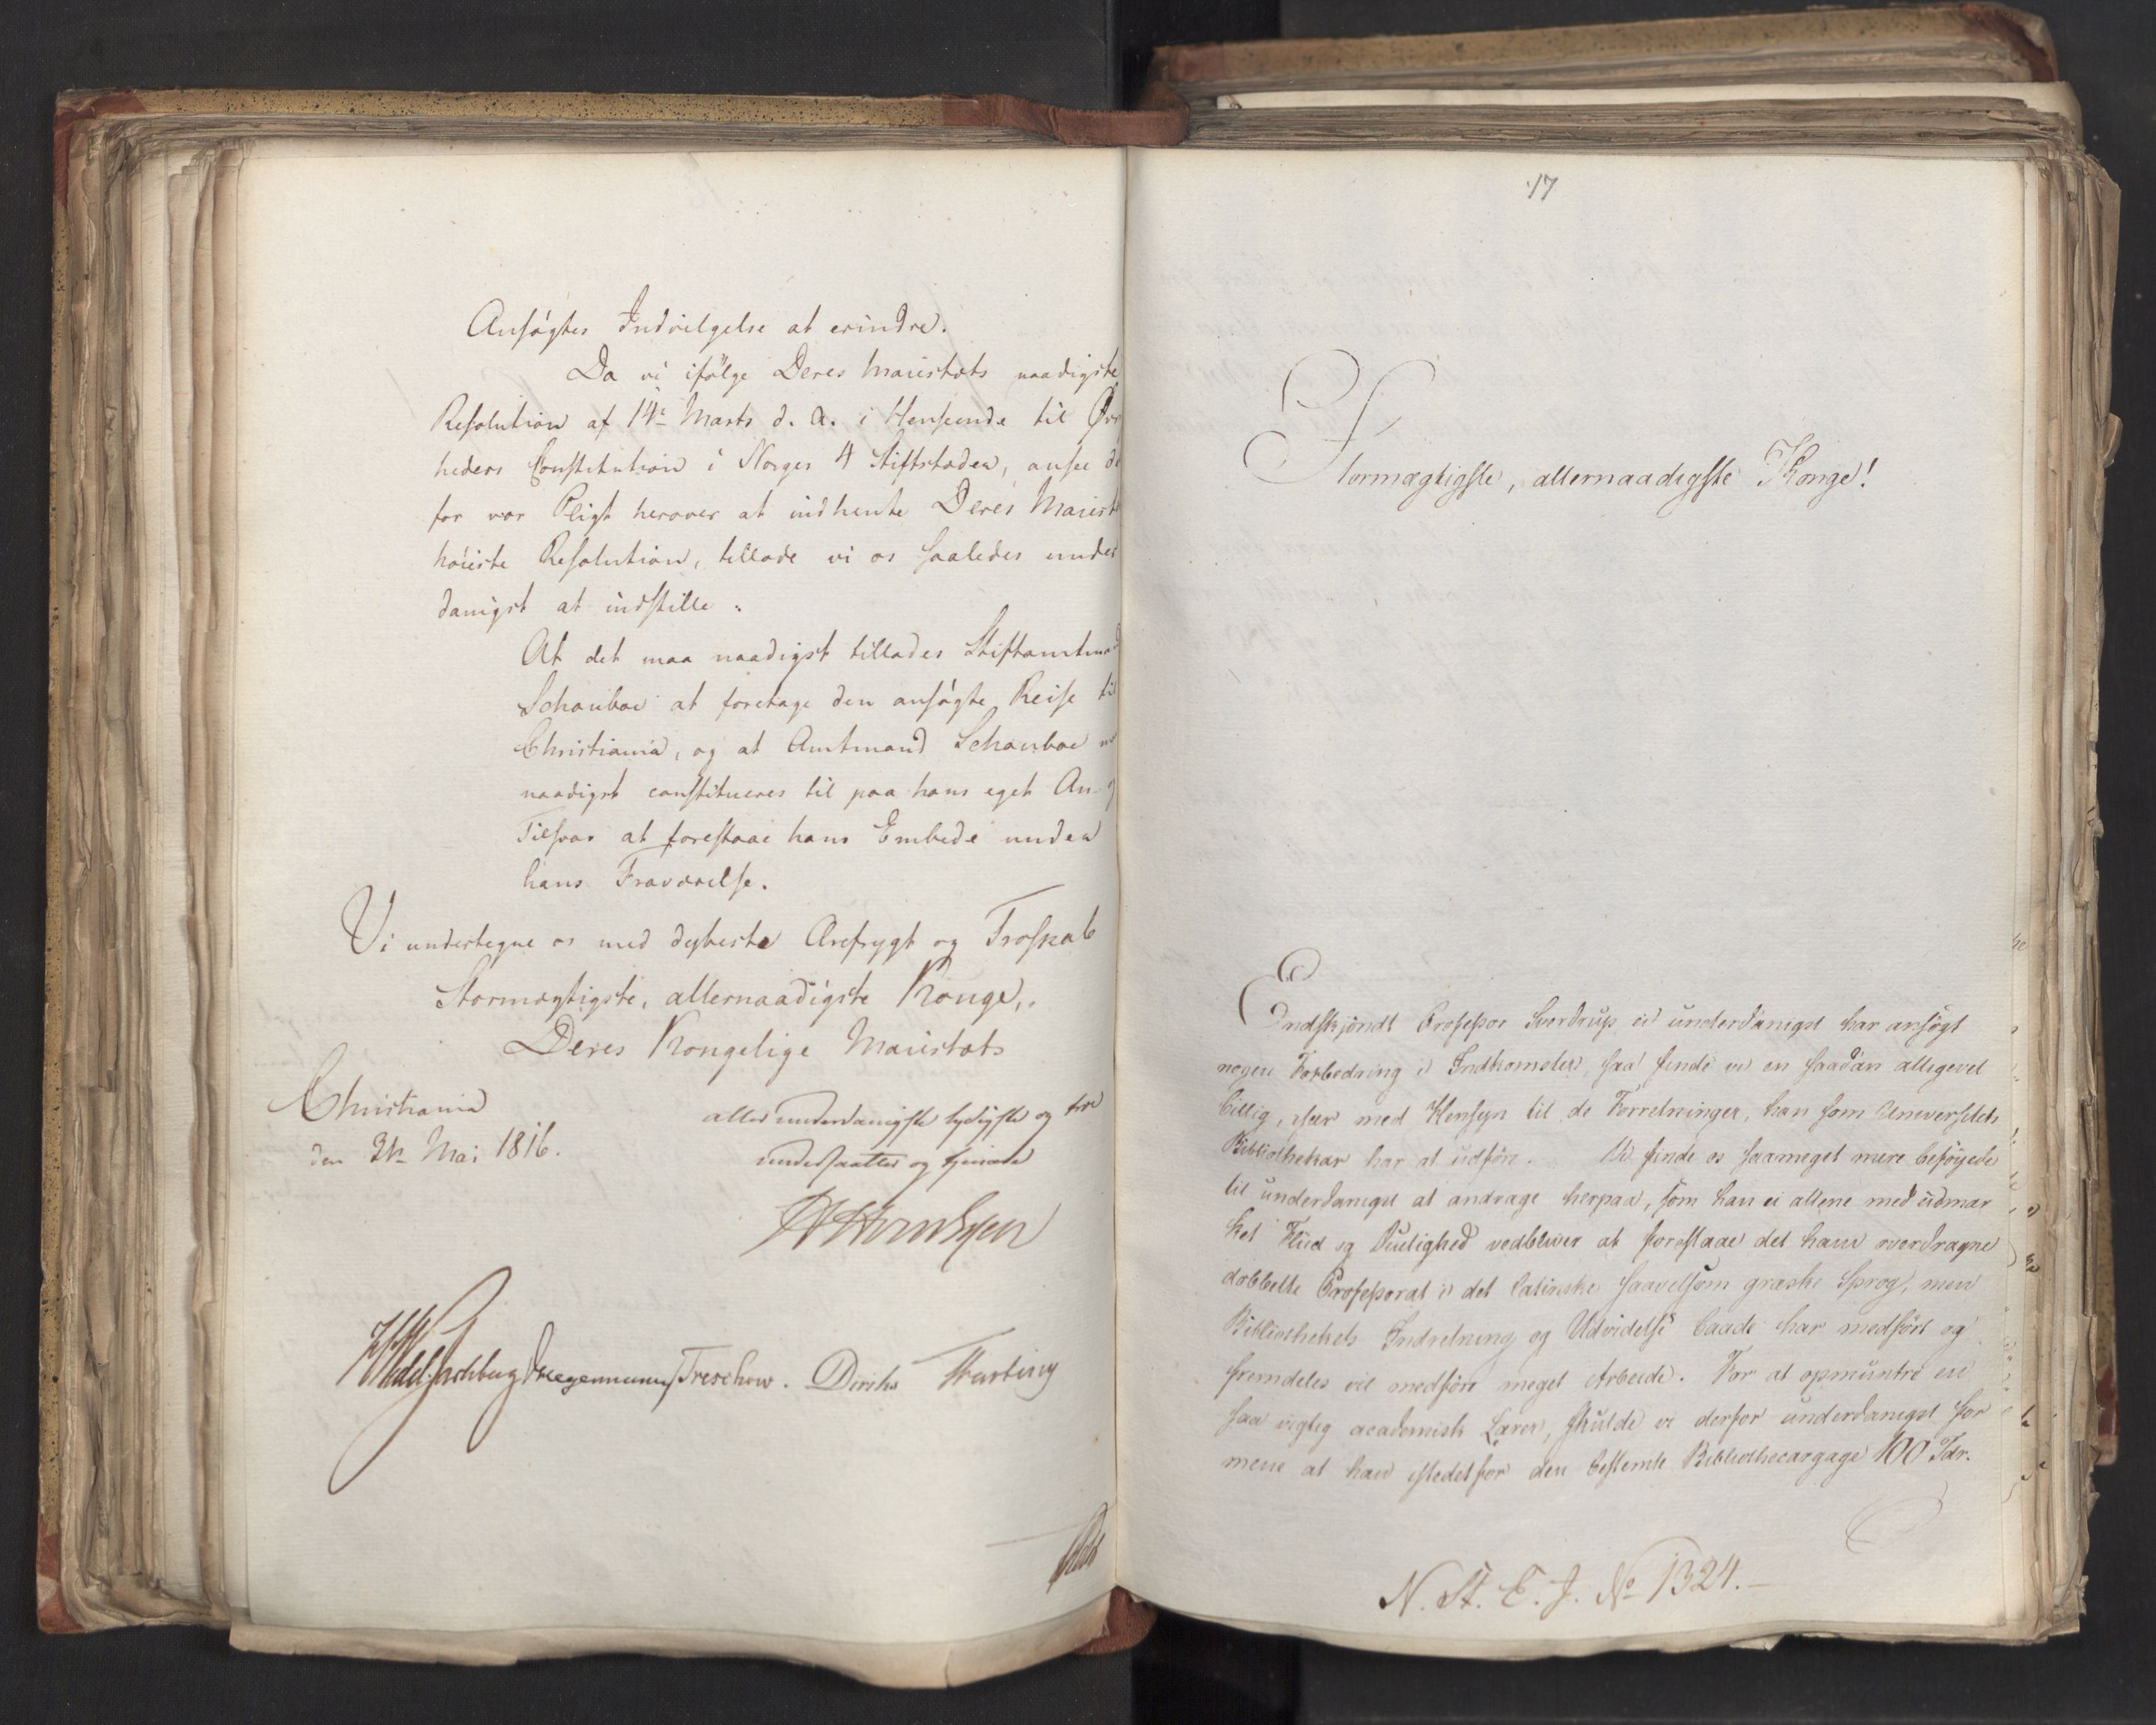 Ansøgtes Indvilgelse at erindre.
Da vi ifølge Deres Maiestæts naadigste
Resolution af 14de Marts d. A. i Henseende til Øvrig
heders Constitution i Norges 4 Stiftstæder, ansee det
for vor Pligt herover at indhente Deres Maiestæts
høieste Resolution, tillade vi os saaledes under
danigst at indstille:
At det maa naadigst tillades Stiftamtmand
Schouboe at foretage den ansøgte Reise til
Christiania, og at Amtmand Schouboe
naadigst constitueres til paa hans eget An- og
Tilsvar at forestaae hans Embede under
hans Fraværelse.
Vi undertegne os med dybeste Ærefrygt og Troskab
Stormægtigste, allernaadigste Konge,
Deres Kongelige Maiestæts
Christiania
den Mai 1816.
allerunderdanigste lydigste og troe
undersaatter og tjenere
Wedel Jarlsberg Treschow. Diriks
17
Stormægtigste, allernaadigste Konge!
Endskjøndt Professor Sverdrup ei underdanigst har ansøgt
nogen Forbedring i Indkomster, saa finde vi en saadan alligevel
billig, især med Hensyn til de Forretninger, han som Universitets
Bibliothekar har at udføre. Vi finde os saameget mere beføyede
til underdanigst at andrage herpaa, som han ei allene med udmær
ket Flid og Duelighed vedbliver at forestaae det ham overdragne
dobbelte Professorat i det latinske saavelsom græske Sprog, men
Bibliothekets Indretning og Udvidelse baade har medført og
fremdeles vil medføre meget Arbeide. For at opmuntre en
saa vigtig academisk Lærer, skulde vi derfor underdanigst for
mene at han istedetfor den bestemte Bibliothecargage 100 Spdr.
N. St. E. J. No 1324.